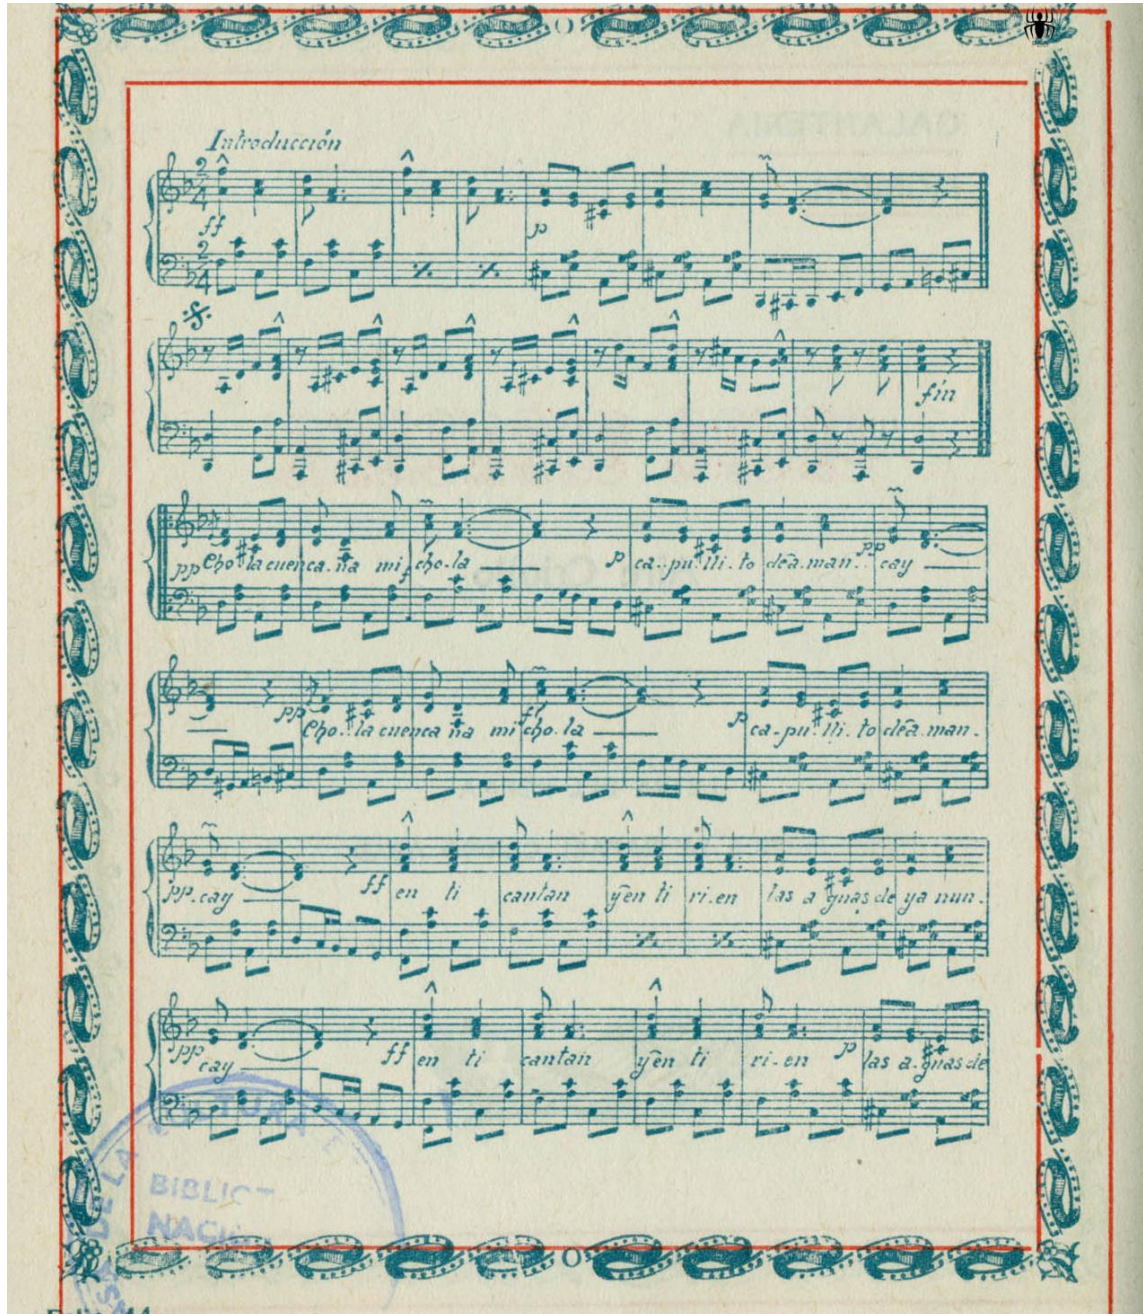 Introducción
ff p
fin
pp Cho-la cuen ca-ña mi cho-la p ca-pu-lli-to déa-man- pp cay
pp Cho-la cuenca ña mi cho-la p ca-pu-lli-to déa-man-
pp-cay ff en ti cantan ÿen ti ri-en las a guas de ya nun-
pp cay ff en ti cantan ÿen ti ri-en p las a-guas de
DE LA CULTURA
BIBLIOT
NACI